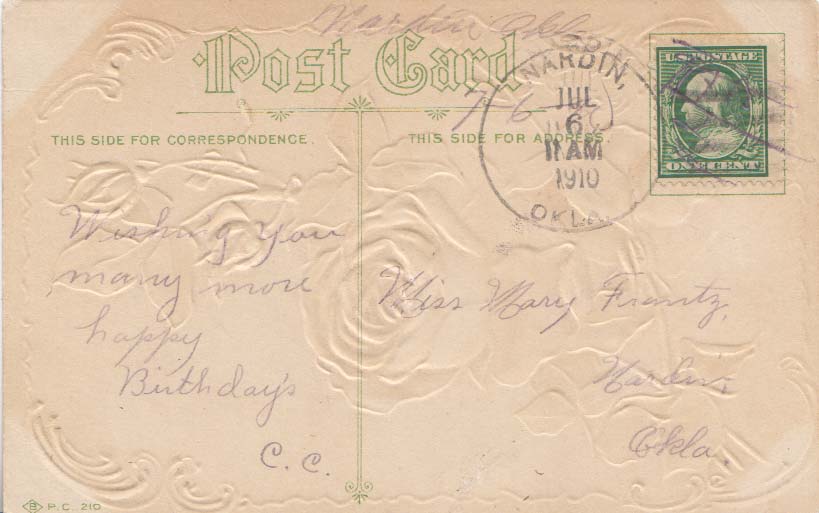 Nardin Okla
Post Card
7-6
NARDIN,
JUL
6
11 AM
1910
OKLA.
U.S. POSTAGE
ONE CENT
THIS SIDE FOR CORRESPONDENCE.
THIS SIDE FOR ADDRESS.
Wishing You
many more
happy
Birthday's
C.C.
Miss Mary Frantz,
Nardin,
Okla.
B P.C. 210